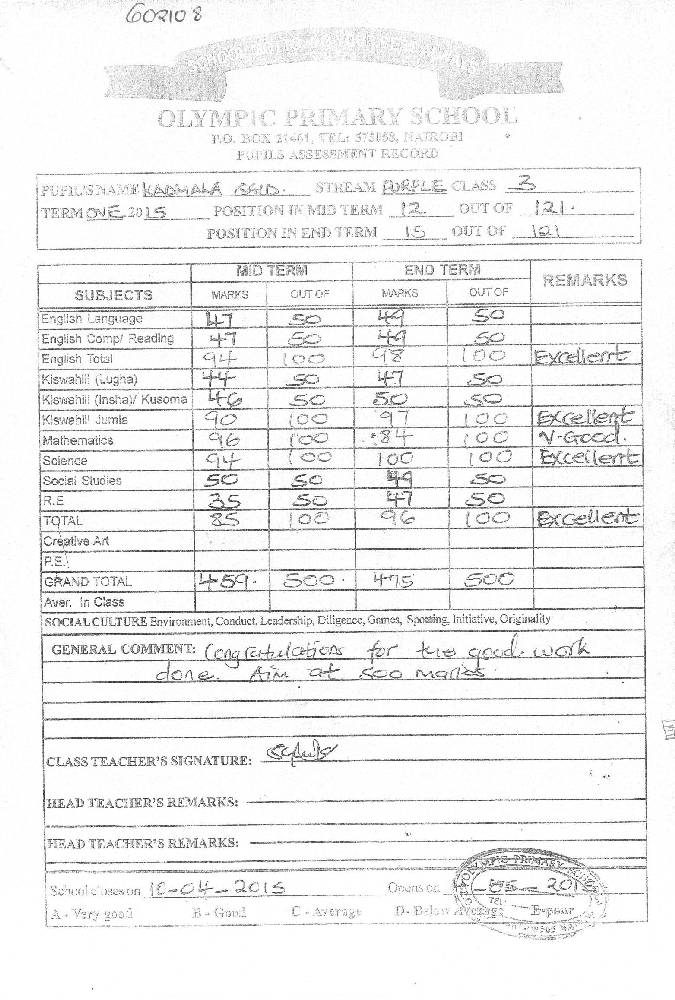 602108
OLYMPIC PRIMARY SCHOOL
P.O. BOX 21461, TEL: 575058, NAIROBI
PUPILS ASSESSMENT RECORD
PUPIL'S NAME KADMALA STREAM PURPLE CLASS 3
TERM ONE 2015 POSITION IN MID TERM 12 OUT OF 121.
POSITION IN END TERM 15 OUT OF 121
MID TERM END TERM REMARKS
SUBJECTS MARKS OUT OF MARKS OUT OF
English Language 47 50 49 50
English Comp/ Reading 47 50 49 50
English Total 94 100 98 100 Excellent
Kiswahili (Lugha) 44 50 47 50
Kiswahili (Insha)/ Kusoma 46 50 50 50
Kiswahili Jumla 90 100 97 100 Excellent
Mathematics 96 100 84 100 V-Good.
Science 94 100 100 100 Excellent
Social Studies 50 50 49 50
R.E 35 50 47 50
TOTAL 85 100 96 100 Excellent
Creative Art
P.E.
GRAND TOTAL 459. 500. 475 500
Aver. In Class
SOCIAL CULTURE Environment, Conduct, Leadership, Diligence, Games, Sporting, Initiative, Originality
GENERAL COMMENT: Congratulations for the good work
done. Aim at 500 marks
CLASS TEACHER'S SIGNATURE:
HEAD TEACHER'S REMARKS:
HEAD TEACHER'S REMARKS:
School closes on 10-04-2015 Opens on -05-201
A - Very good B - Good C - Average D - Below Average E-poor
OLYMPIC PRIMARY SCHOOL